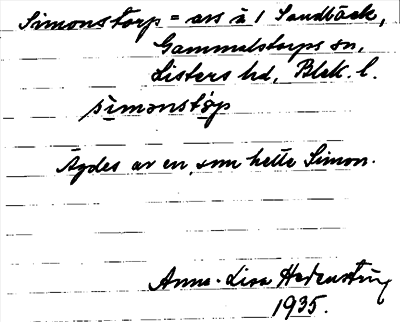 Simonstorp = ars å 1 Sandbäck,
Gammalstorps sn,
Listers hd, Blek. l.
simonstop
Ägdes av en, som hette Simon.
Anna-Lisa
1935.